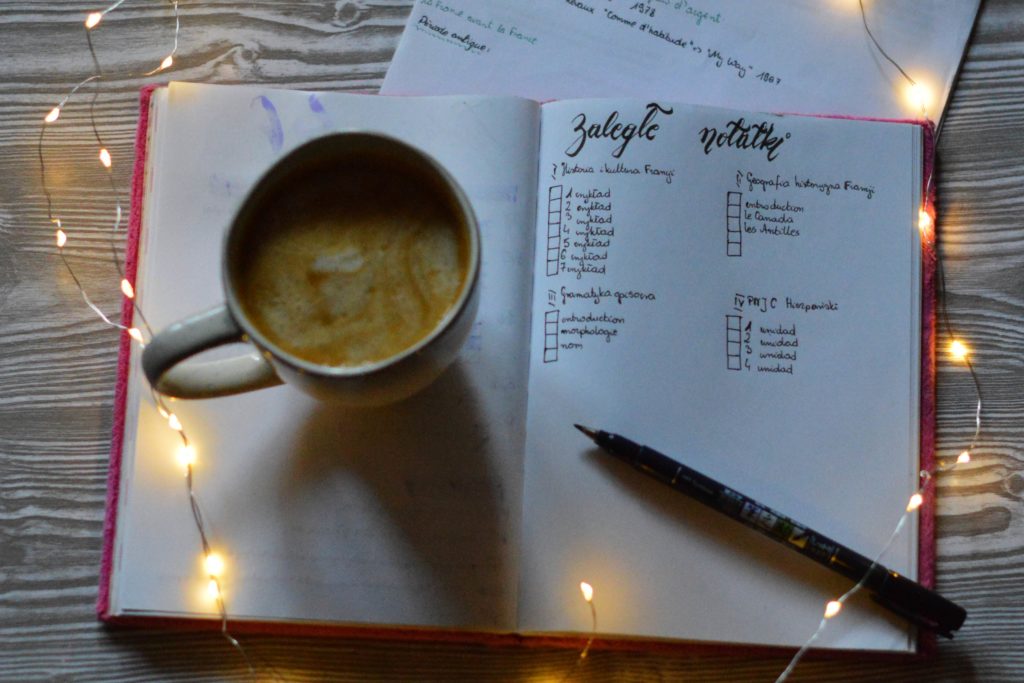 d'argent
1978
"comme d'habitude" => "My Way" 1967
la France avant la France
Période antique:
Zaległe notatki
I Historia i kultura Francji
1 wykład
2 wykład
3 wykład
4 wykład
5 wykład
6 wykład
7 wykład
II Geografia historyczna Francji
introduction
le Canada
les Antilles
III Gramatyka opisowa
introduction
morphologie
nom
IV PNJ C Hiszpański
1 unidad
2 unidad
3 unidad
4 unidad